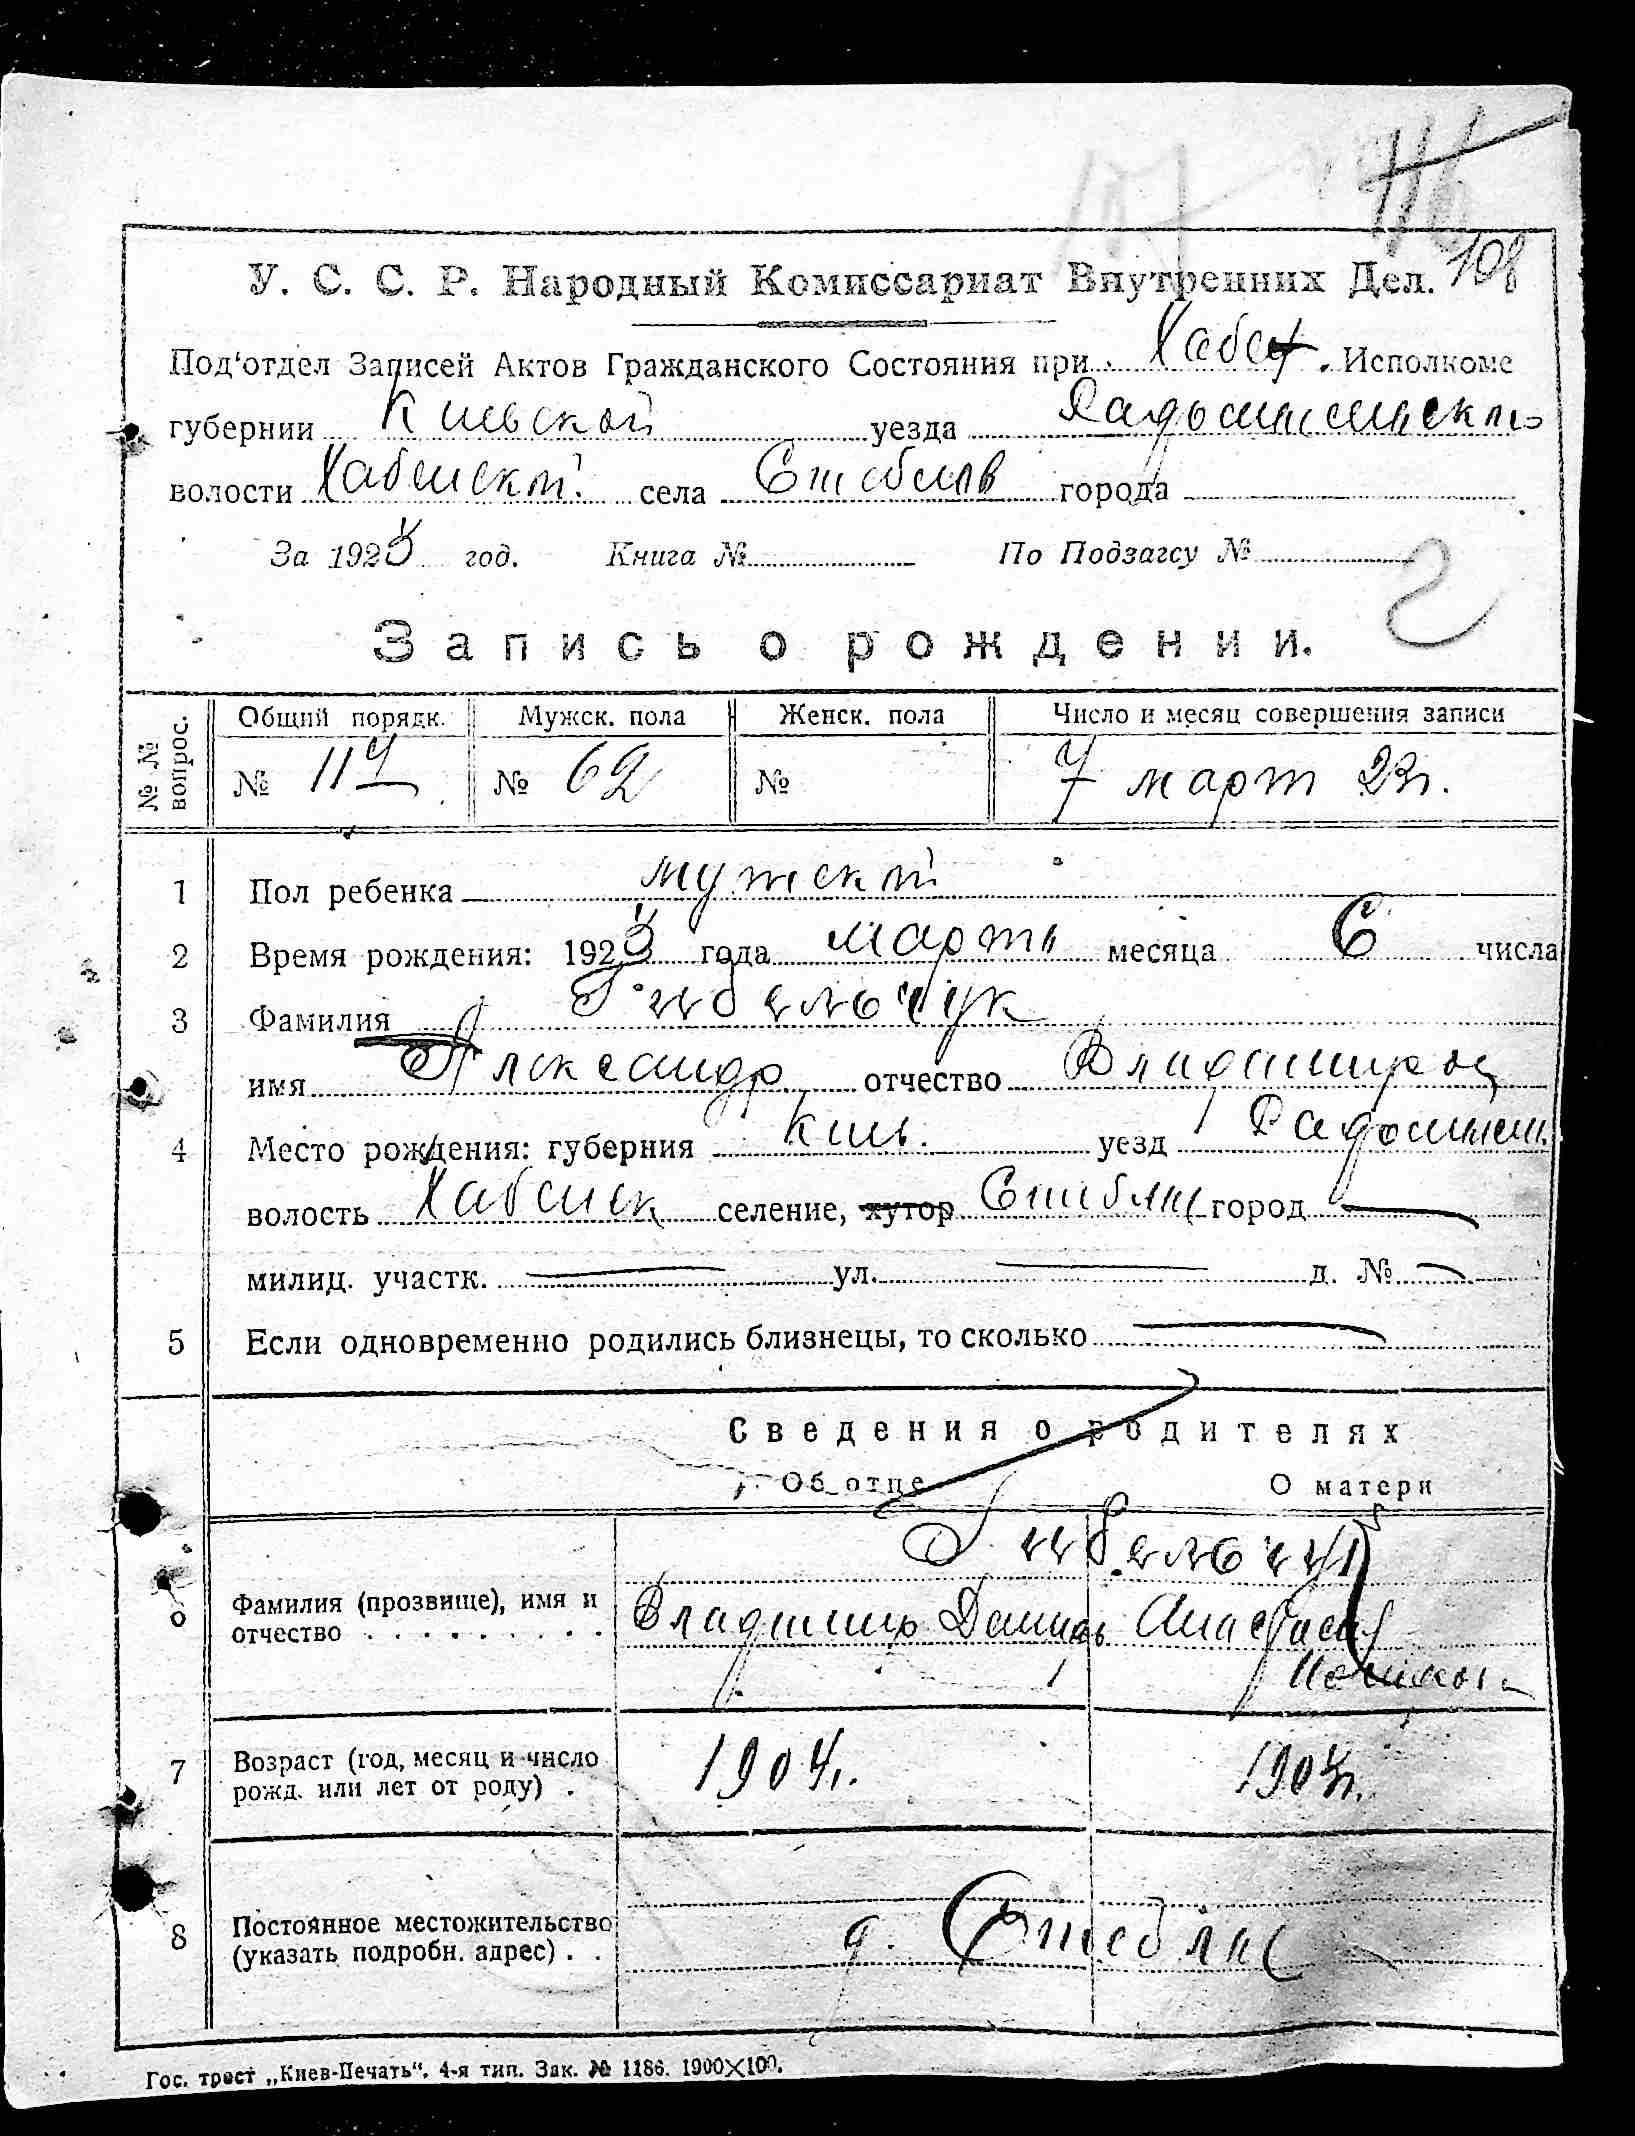 108
У. С. С. Р. Народный Комиссариат Внутренних Дел.
Под'отдел Записей Актов Гражданского Состояния при Хабен. Исполкоме
губернии Киевской уезда Радомысльского
волости Хабенской села Стеблев города
За 1923 год. Книга № По Подзагсу №
Запись о рождении.
№ № вопрос. Общий порядк. Мужск. пола Женск. пола Число и месяц совершения записи
№ 119 № 62 № 7 март 23г.
1 Пол ребенка мужской
2 Время рождения: 1923 года марта месяца 6 числа
3 Фамилия
имя Александр отчество Владимиров
4 Место рождения: губерния Киев. уезд Радомысл.
волость Хабенск селение, хутор город
милиц. участк. ул. д. №
5 Если одновременно родились близнецы, то сколько
Сведения о родителях
Об отце О матери
6 Фамилия (прозвище), имя и
отчество Владимир Анастасия
7 Возраст (год, месяц и число
рожд. или лет от роду) 1904г. 1904г.
8 Постоянное местожительство
(указать подробн. адрес)
Гос. трест „Киев-Печать". 4-я тип. Зак. № 1186. 1900×100.